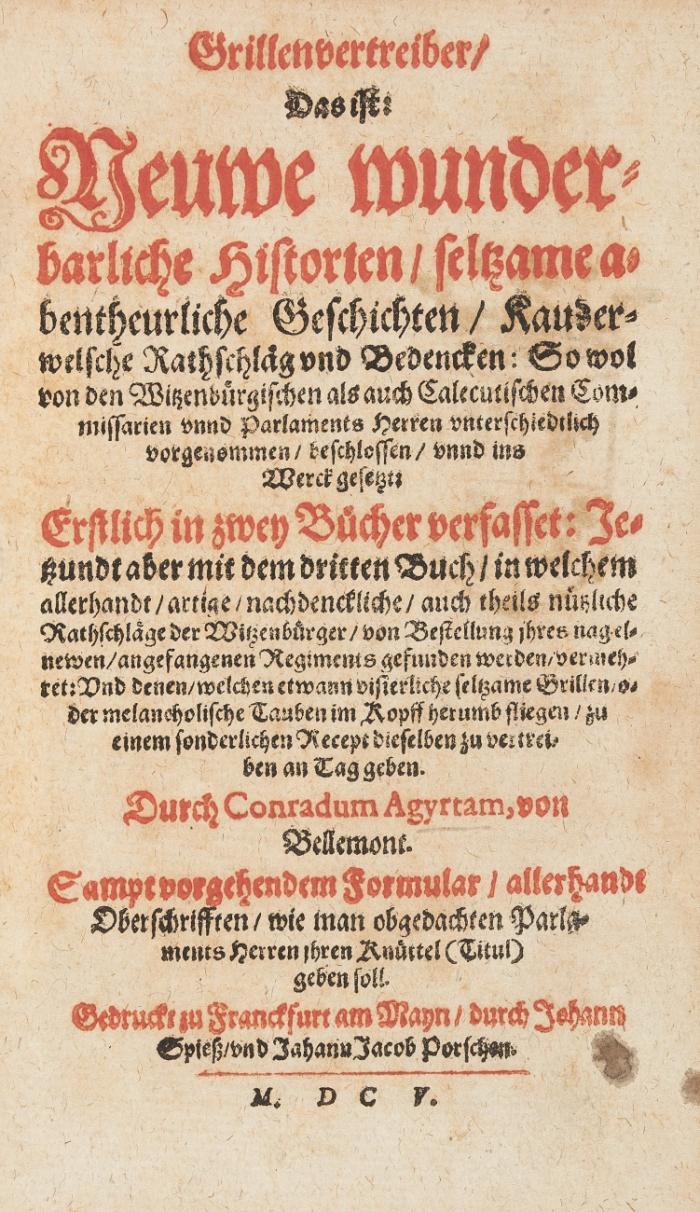 Grillenvertreiber/
Das ist:
Neuwe wunder-
barliche Historien / seltzame a-
bentheurliche Geschichten / Kauder-
welsche Rathschläg vnd Bedencken: So wol
von den Witzenbürgischen als auch Calecutischen Com-
missarien vnnd Parlaments Herren vnterschiedtlich
vorgenommen / beschlossen / vnnd ins
Werck gesetzt:
Erstlich in zwey Bücher verfasset: Je-
tzundt aber mit dem dritten Buch / in welchem
allerhandt / artige / nachdenckliche / auch theils nützliche
Rathschläge der Witzenbürger / von Bestellung jhres nagel-
newen / angefangenen Regiments gefunden werden / vermeh-
ret: Vnd denen / welchen etwann visierliche seltzame Grillen / o-
der melancholische Tauben im Kopff herumb fliegen / zu
einem sonderlichen Recept dieselben zu vertrei-
ben an Tag geben.
Durch Conradum Agyrtam, von
Bellemont.
Sampt vorgehendem Formular / allerhandt
Oberschrifften / wie man obgedachten Parla-
ments Herren jhren Knüttel (Titul)
geben soll.
Gedruckt zu Franckfurt am Mayn / durch Johann
Spieß / vnd Jahann Jacob Porschen.
M. D C V.